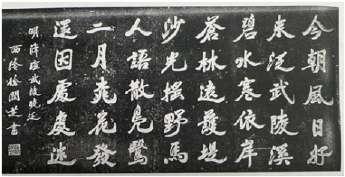 今朝風日好
来泛武陵溪
碧水寒依岸
蒼林遠護堤
沙光搖野馬
人語散鳧鷖
二月桃花發
還因處處迷
明薛瑄武陵晚泛
西陵書